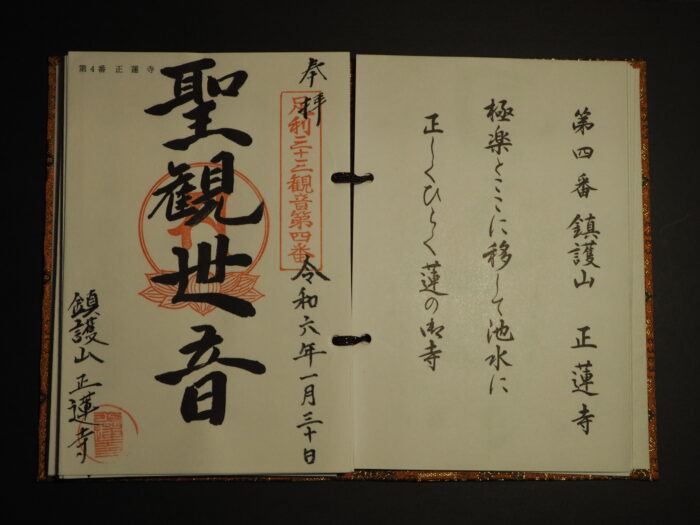 第四番 鎮護山 正蓮寺
極楽とここに移して池水に
正しくひらく蓮の御寺
奉拝
足利三十三観音第四番
令和六年一月三十日
聖観世音
鎮護山 正蓮寺
第4番 正蓮寺